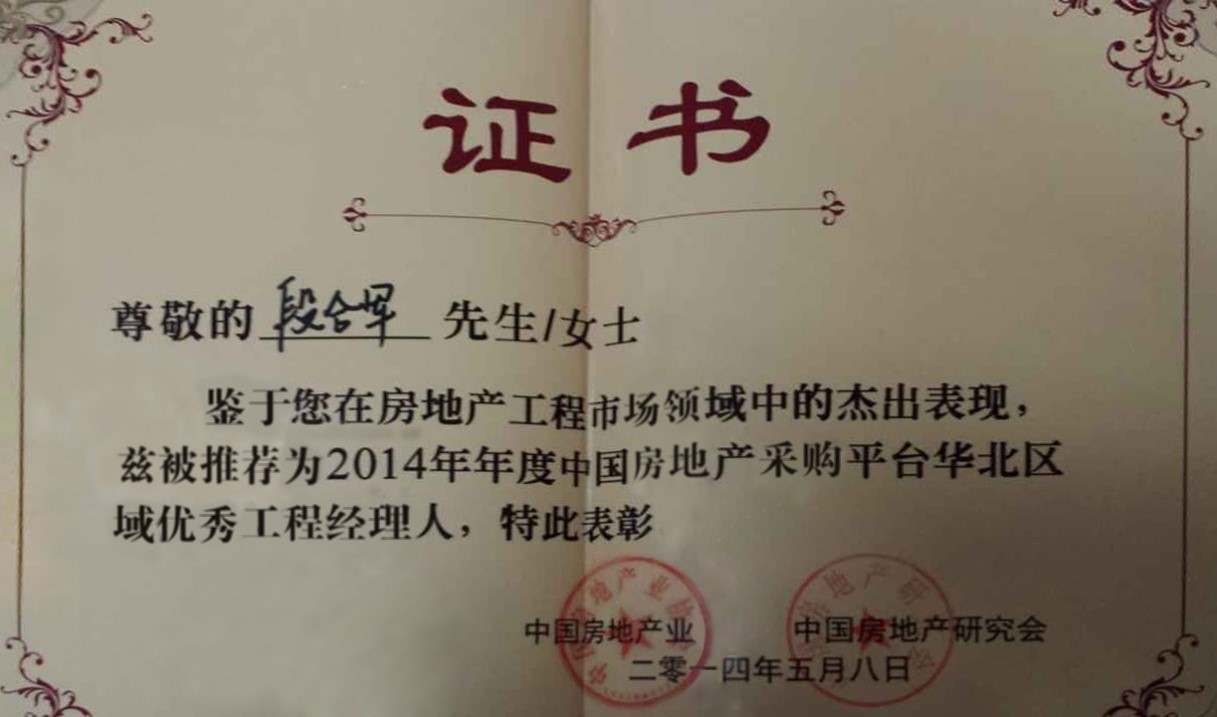 证书
尊敬的 段合军 先生/女士
鉴于您在房地产工程市场领域中的杰出表现，
兹被推荐为2014年年度中国房地产采购平台华北区
域优秀工程经理人，特此表彰
中国房地产业 中国房地产研究会
二零一四年五月八日